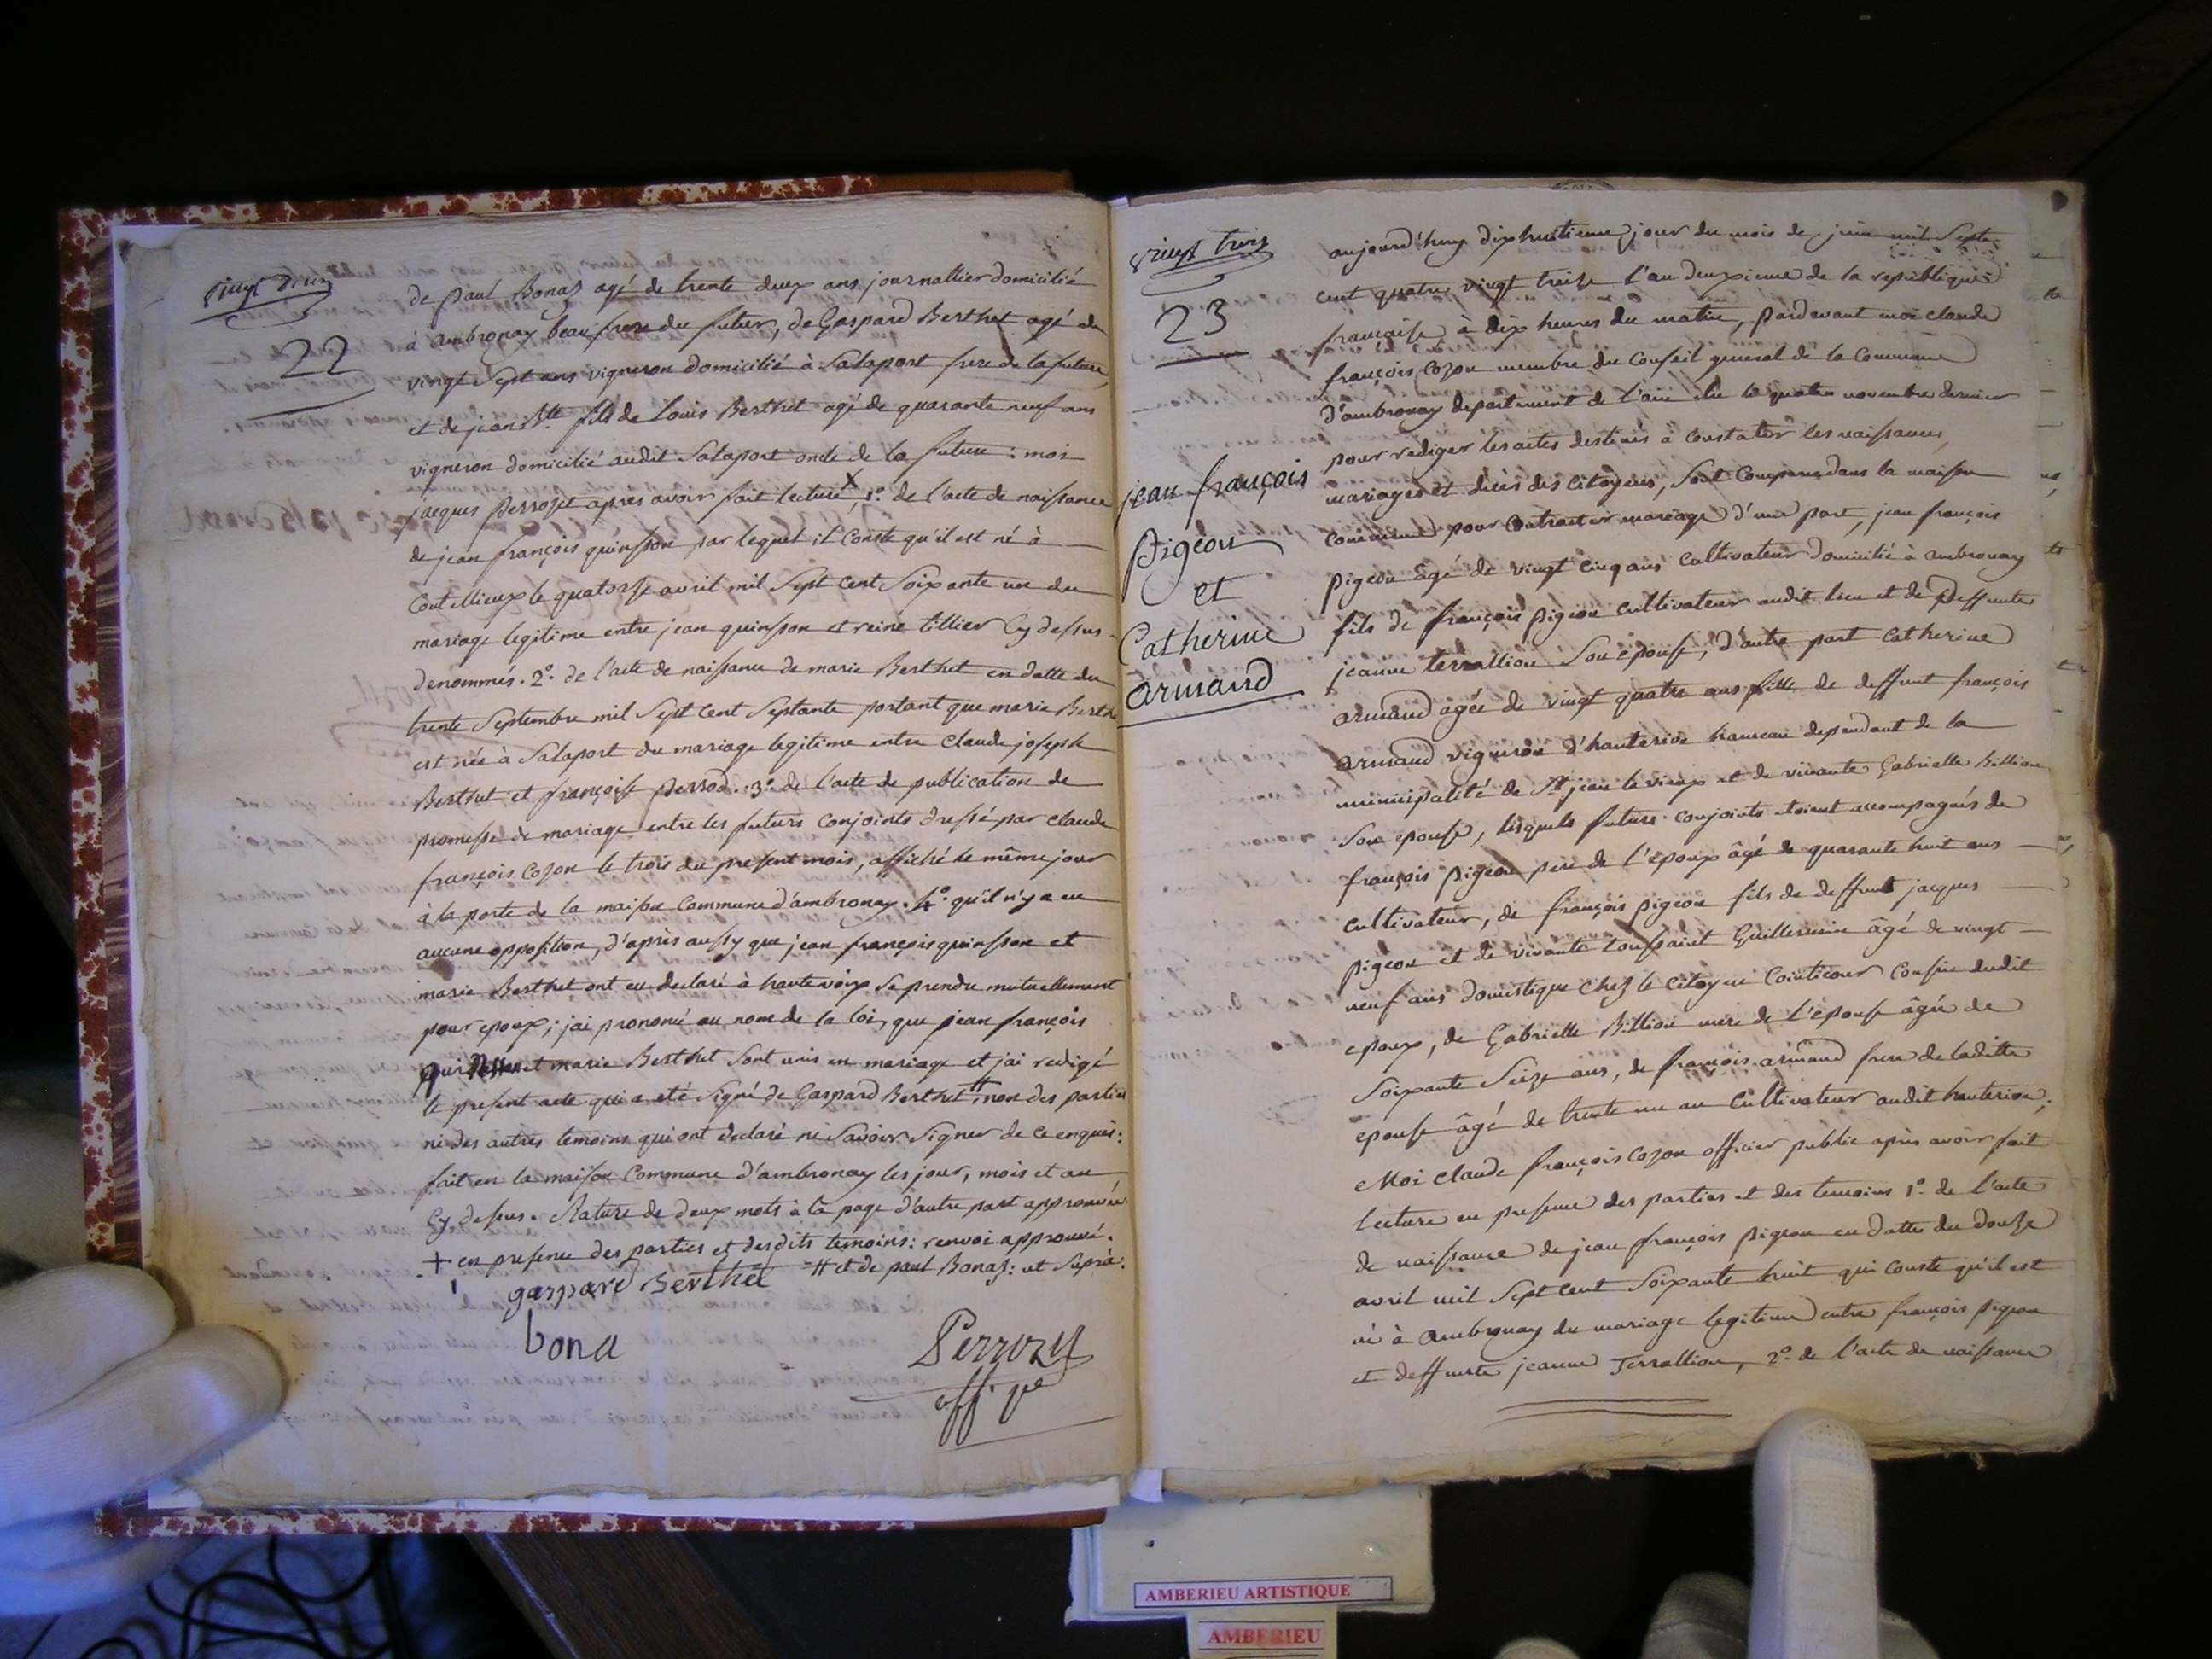 vingt deux
22
de paul Bonaz agé de trente deux ans journallier domicilié
à ambronay beau frere du futur, de Gaspard Berthet agé de
vingt Sept ans vigneron domicilié à Salaport frere de la future,
et de jean Bte fils de Louis Berthet agé de quarante neuf ans
vigneron domicilié audit Salaport oncle de la future : moi
jacques Perrozet apres avoir fait lecture X 1°. de l'acte de naissance
de jean françois quinsson par lequel il Conste qu'il est né à
le quatorze avril mil Sept Cent Soixante un du
mariage legitime entre jean quinson et reine tillier Cy dessus
denommés. 2°. de l'acte de naissance de marie Berthet en datte du
trente Septembre mil Sept Cent Septante portant que marie Berthe
est née à Salaport du mariage legitime entre Claude joseph
Berthet et françoise perrod. 3°. de l'acte de publication de
promesse de mariage entre les futurs Conjoints dressé par claude
françois Cozon le trois du present mois, affiché le même jour
à la porte de la maison Commune d'ambronay. 4°. qu'il n'y a eu
aucune opposition, d'après aussy que jean françois quinsson et
marie Berthet ont eu declaré à haute voix Se prendre mutuellement
pour epoux ; jai prononcé au nom de la loi, que jean françois
et marie Berthet Sont unis en mariage et jai redigé
le present acte qui a eté Signé de Gaspard Berthet # non des parties
ni des autres temoins qui ont declaré ne Savoir Signer de ce enquis :
fait en la maison Commune d'ambronay les jour, mois et an
Cy dessus. Rature de deux mots à la page d'autre part approuvée
+ en presence des parties et desdits temoins : renvoi approuvé.
# et de paul Bonaz : ut Supra.
gaspard Berthet
bona
Perrozet
off. pe
vingt trois
23
jean françois
Pigeon
et
Catherine
armand
aujourd'huy dix huitieme jour du mois de juin mil Sept
cent quatre vingt treize l'an deuxieme de la republique
française, à dix heures du matin, pardevant moi claude
françois Cozon membre du Conseil general de la Commune
d'ambronay departement de l'ain elu le quatre novembre dernier
pour rediger les actes destinés à Constater les naissances,
mariages et décès des Citoyens, Sont Comparus dans la maison
commune pour Contracter mariage d'une part, jean françois
pigeon âgé de vingt cinq ans Cultivateur domicilié à ambronay
fils de françois pigeon cultivateur audit lieu et de deffunte
jeanne terrallion Son epouse, d'autre part Catherine
armand agée de vingt quatre ans fille de deffunt françois
armand vigneron d'hauterive hameau dependant de la
municipalité de St jean le vieux et de vivante Gabrielle Billion
Son epouse, lesquels futurs conjoints etoient accompagnés de
françois pigeon pere de l'epoux âgé de quarante huit ans
cultivateur, de françois pigeon fils de deffunt jacques
pigeon et de vivante toussaint Guillermin âgé de vingt
neuf ans domestique chez le Citoyen Cousin dudit
epoux, de Gabrielle Billion mere de l'epouse âgée de
Soixante Seize ans, de françois armand frere de laditte
epouse âgé de trente un an Cultivateur audit hauterive ;
Moi claude françois Cozon officier public après avoir fait
lecture en presence des parties et des temoins 1°. de l'acte
de naissance de jean françois pigeon en datte du douze
avril mil Sept cent Soixante huit qui Conste qu'il est
né à Ambronay du mariage legitime entre françois pigeon
et deffunte jeanne Terrallion, 2°. de l'acte de naissance
AMBERIEU ARTISTIQUE
AMBERIEU